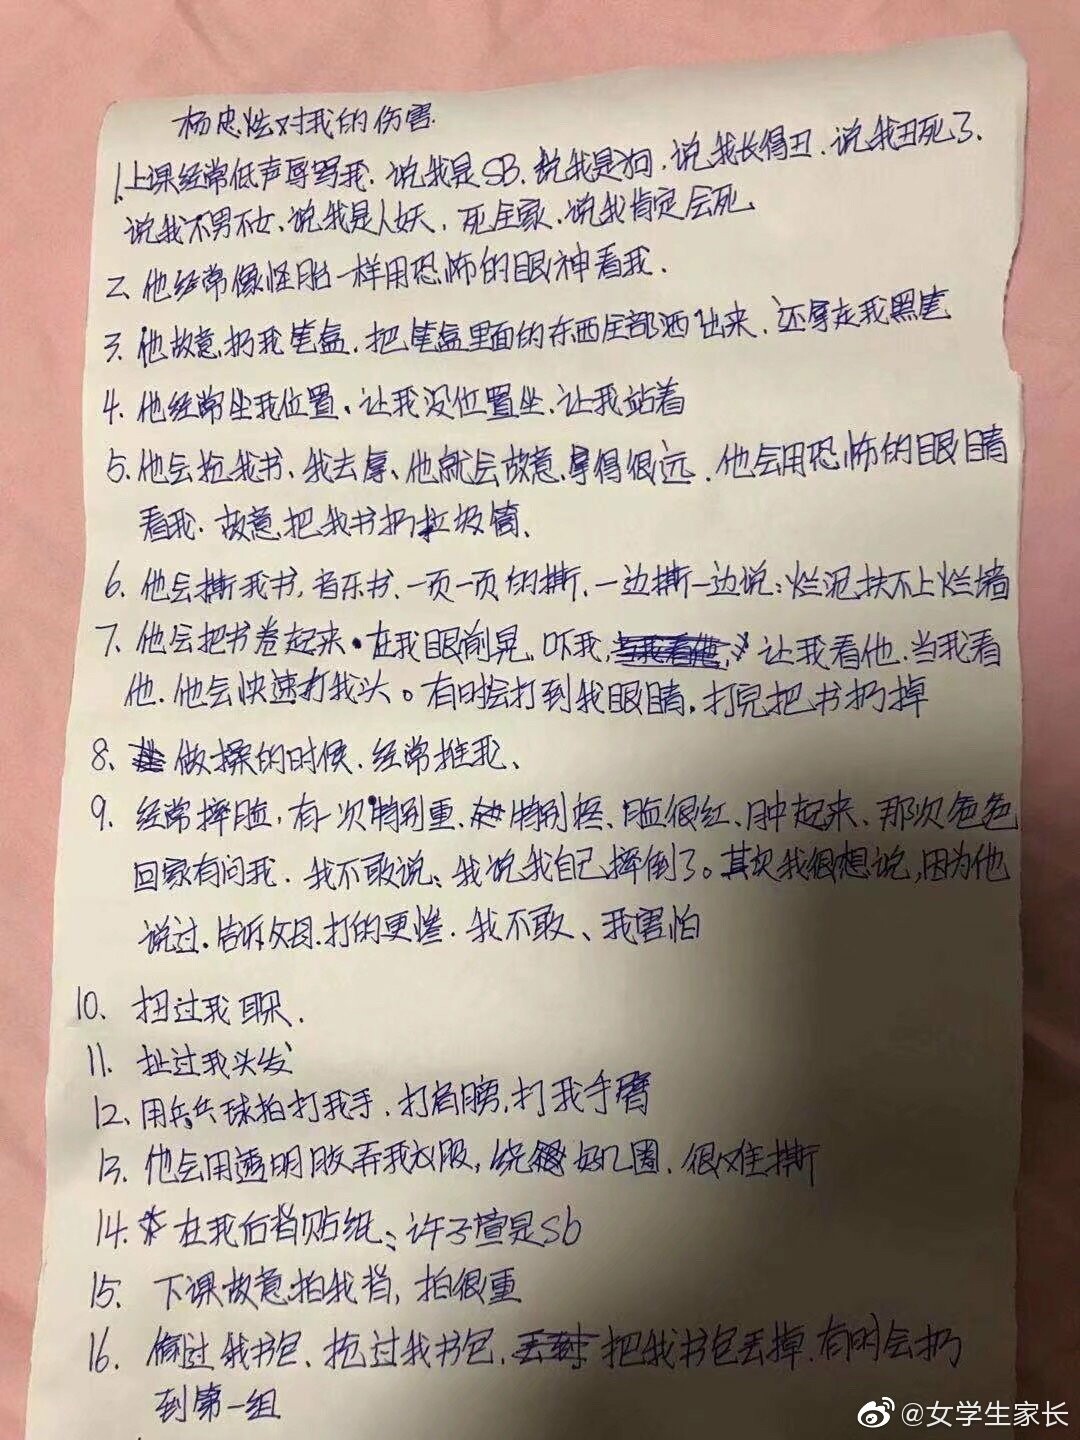 杨忠炫对我的伤害.
1.上课经常低声辱骂我.说我是SB.说我是狗.说我长得丑.说我丑死了.
说我不男不女、说我是人妖,死全家.说我肯定会死
2.他经常像怪胎一样用恐怖的眼神看我.
3.他故意扔我笔盒.把笔盒里面的东西全部洒出来.还拿走我黑笔
4.他经常坐我位置、让我没位置坐.让我站着
5.他会抢我书、我去拿、他就会故意拿得很远.他会用恐怖的眼睛
看我.故意把我书扔垃圾筒、
6.他会撕我书,音乐书.一页一页的撕.一边撕一边说:烂泥扶不上烂墙
7.他会把书卷起来.在我眼前晃.吓我,当我看他,让我看他.当我看
他.他会快速打我头。有时会打到我眼睛,打完把书扔掉
8.做操的时候.经常推我、
9.经常摔脸,有一次特别重、特别怪、脸很红、肿起来、那次爸爸
回家有问我.我不敢说、我说我自己摔倒了。其实我很想说,因为他
说过.告诉父母.打的更惨.我不敢、我害怕
10.扭过我耳.
11.扯过我头发
12.用乒乓球拍打我手.打肩膀,打我手臂
13.他会用透明胶弄我衣服,绕好几圈.很难撕
14.在我后背贴纸:许子萱是sb
15.下课故意拍我背,拍很重
16.偷过我书包、抢过我书包.把我书包丢掉.有时会扔
到第一组
@女学生家长